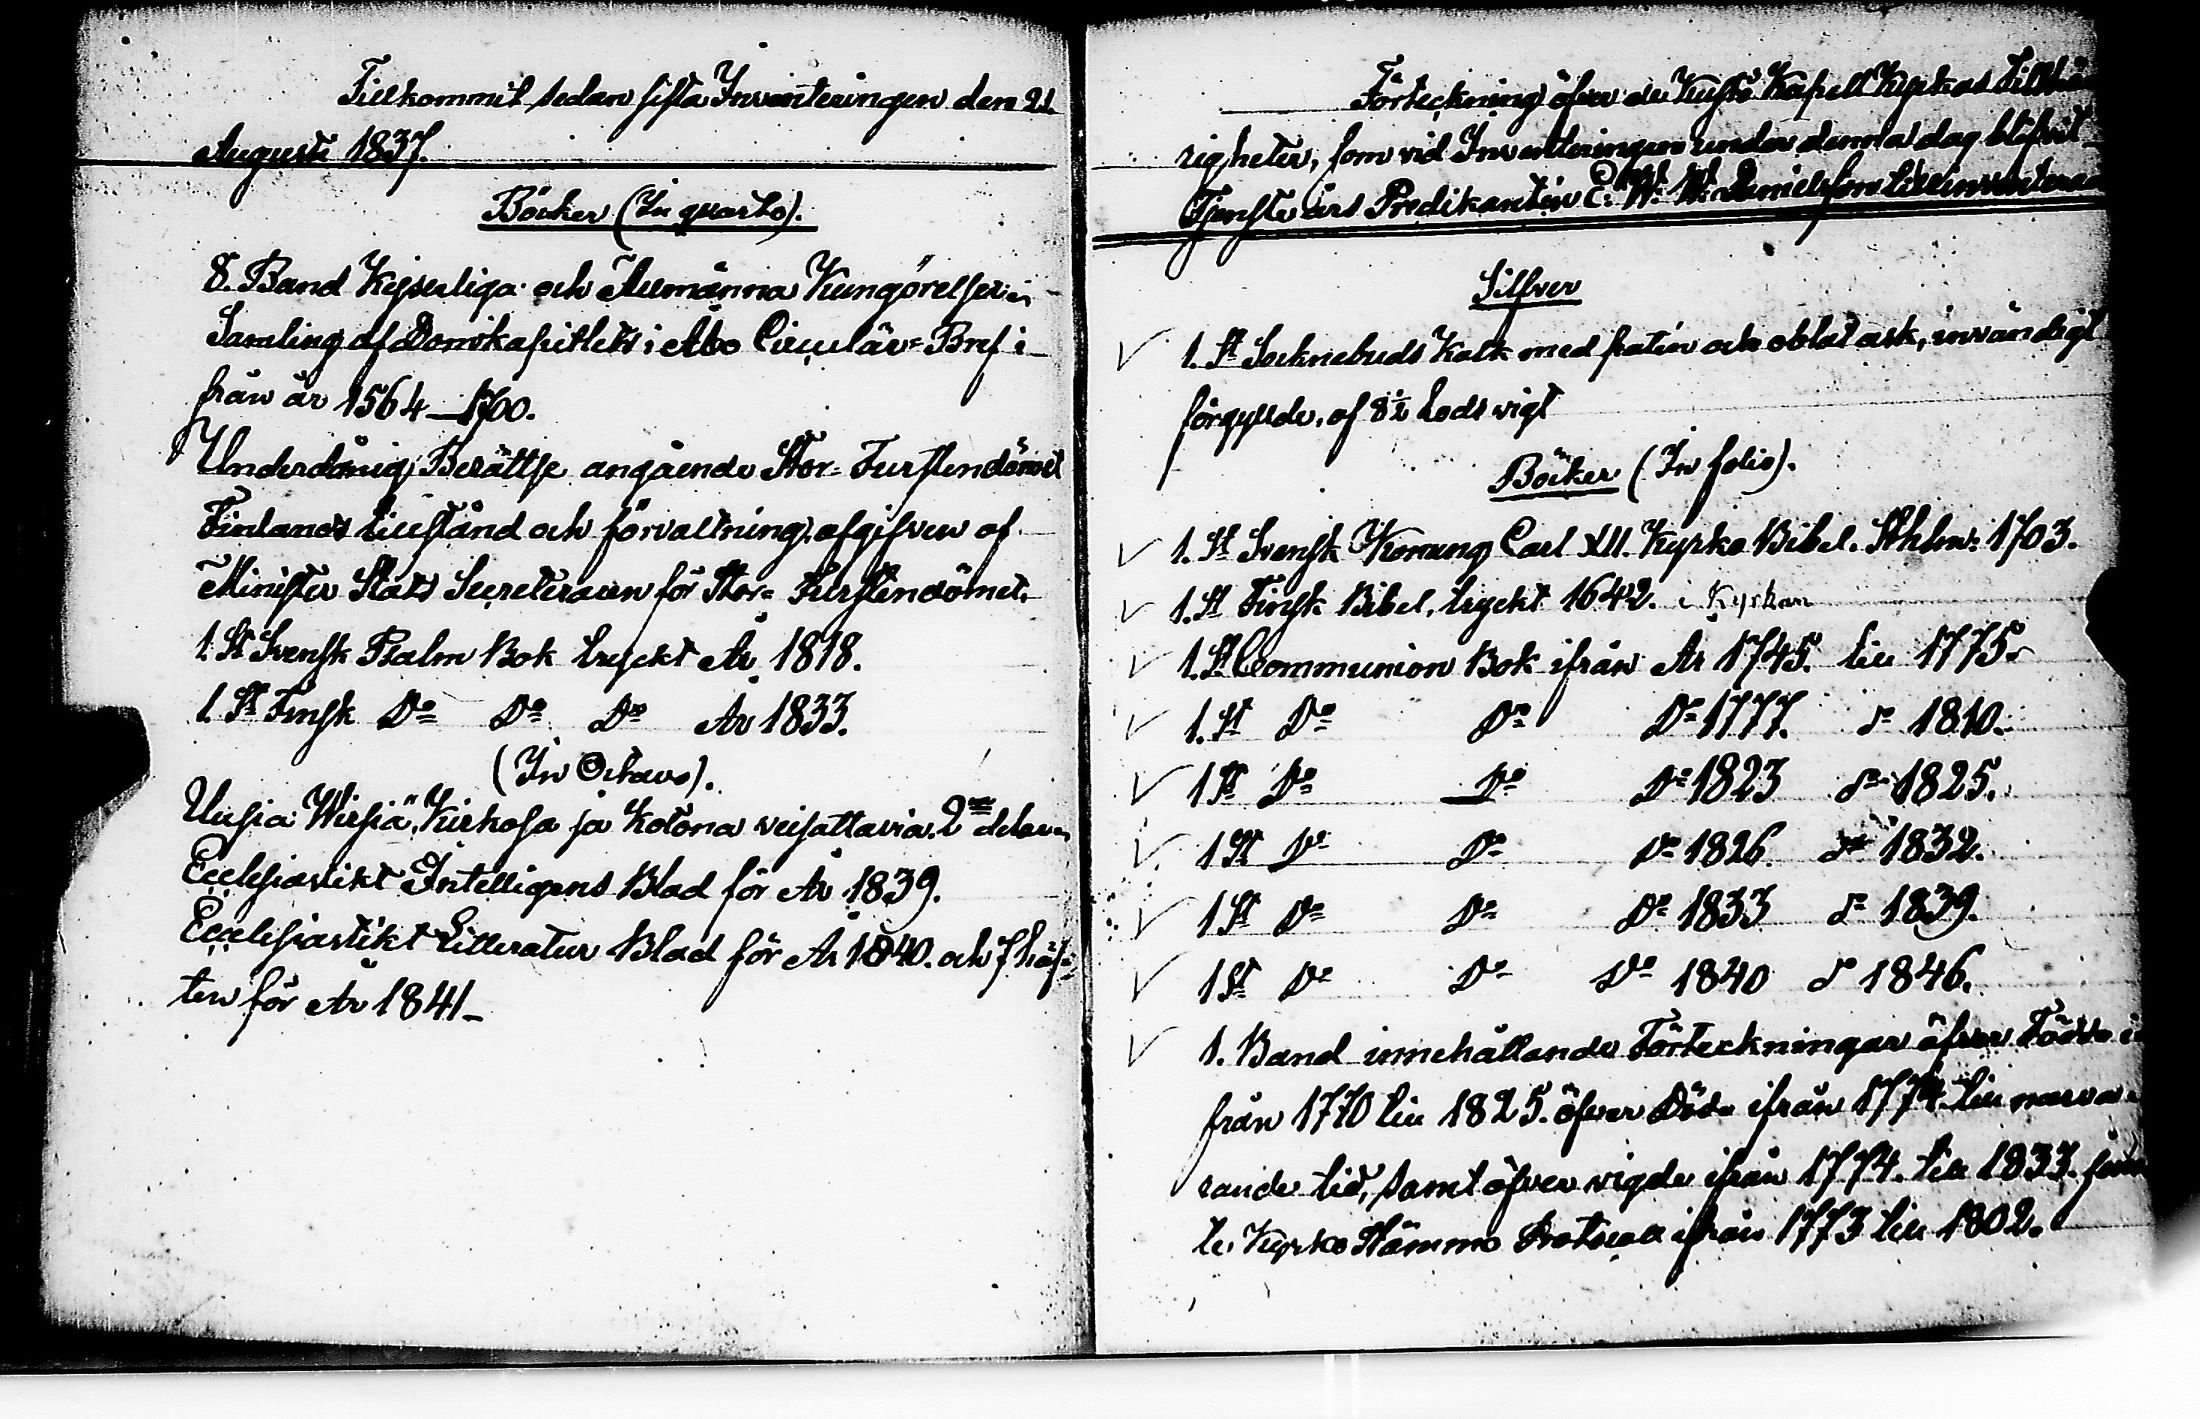 Tillkommit sedan sista Inventeringen den 21
Augusti 1837.
Böcker (In quarto).
8. Band Kejserliga och Allmänna Kungörelser
Samling af Domkapitlets i Åbo Circulär-Bref i
från år 1564–1700.
Underdånig Berättse angående Stor-Furstendömet
Finlands tillstånd och förvaltning, afgifven af
Minister Stats Secreteraren för Stor-Furstendömet.
1. St Svensk Psalm Bok tryckt År 1818.
1. St Finsk Do Do Do År 1833.
(In Octavo).
Uusia Wirsiä, Kirkosa ja Kotona veisattavia. 2ne delar
Ecclesiastikt Intelligens Blad för År 1839.
Ecclesiastikt Litteratur Blad för År 1840. och 7 häf-
ten för År 1841–
Förteckning öfver de Kustö Kapell Kyrkas tillhö
righeter, som vid Inventeringen under denna dag blifvit
Tjenste års Predikanten E. W. Danielsson
Silfver
1. St Socknebuds Kalk med patin och oblat ask, invändigt
förgyllde, af 8½ Lods vigt
Böcker (In folio).
1. St Svensk Konung Carl XII. Kyrko Bibel. Sthlm: 1703.
1. St Finsk Bibel, tryckt 1642. i Kyrkan
1. St Communion Bok ifrån År 1745. till 1775.
1. St Do Do Do 1777. do 1810.
1 St Do Do Do 1823 do 1825.
1 St Do Do Do 1826. do 1832.
1 St Do Do Do 1833 do 1839.
1 St Do Do Do 1840 do 1846.
1. Band innehållande Förteckningar öfver Födde i
från 1770 till 1825. öfver Döde ifrån 1774. till narva-
rande tid, samt öfver vigde ifrån 1774. till 1833. jem
te Kyrko Stämmo Protocoll ifrån 1773 till 1802.